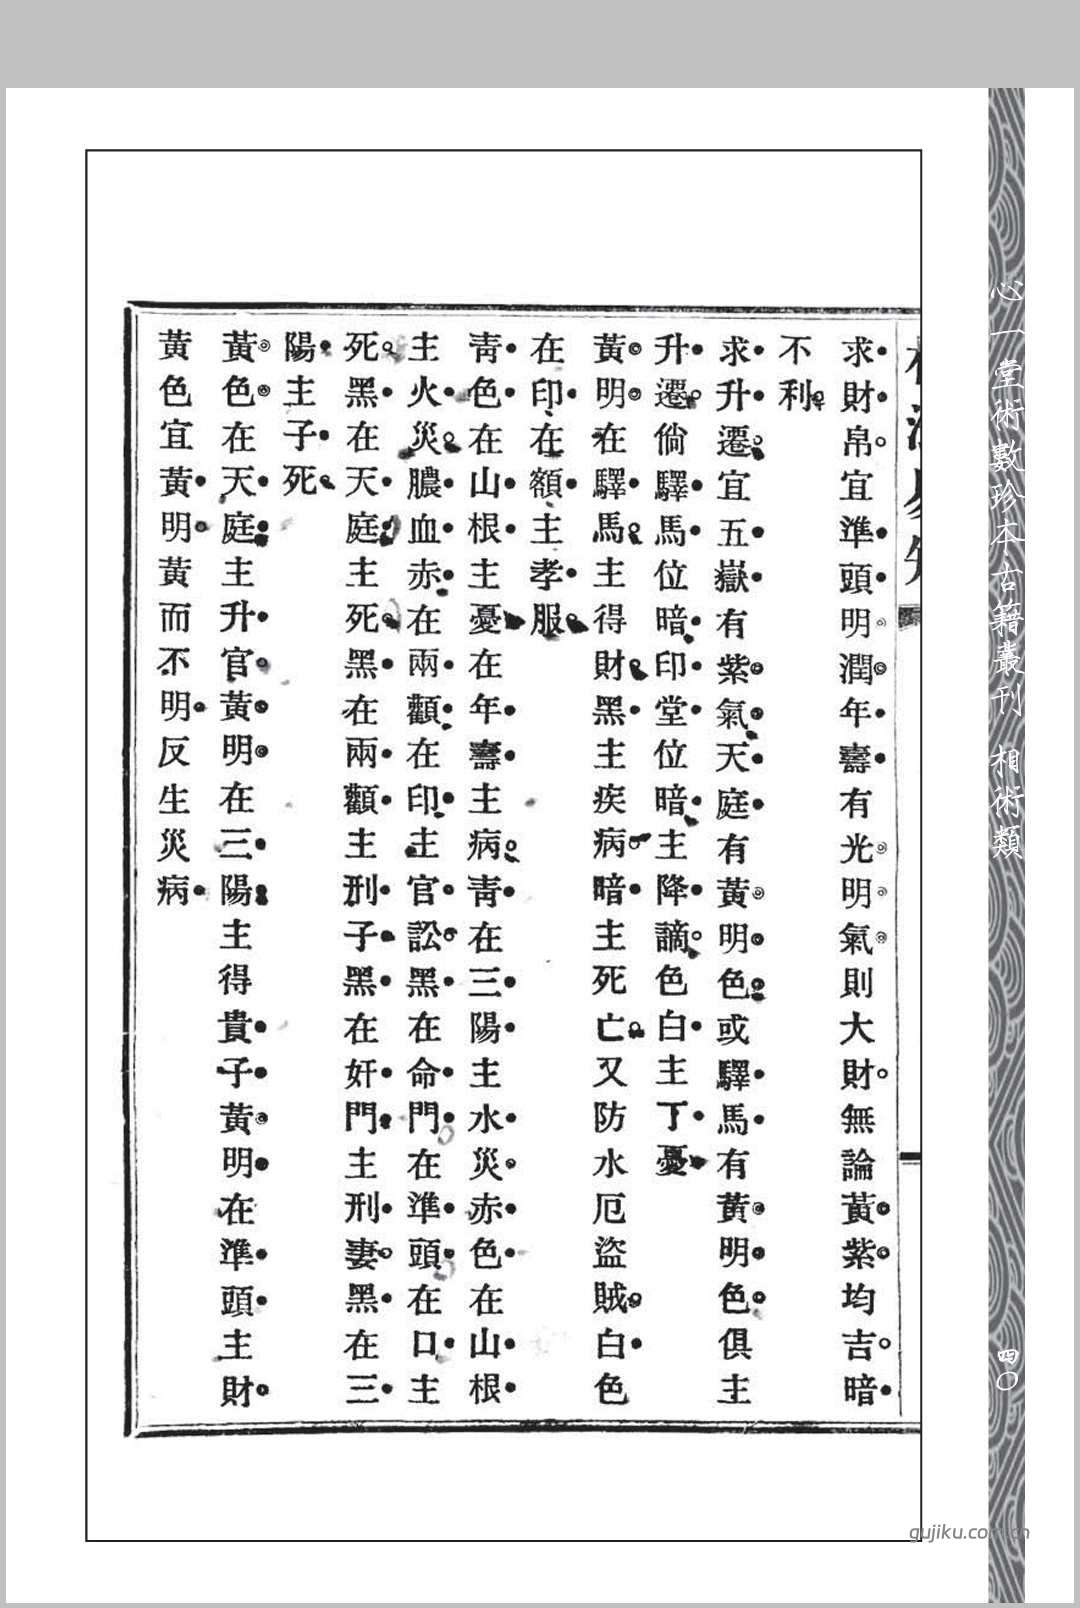 心一堂術數珍本古籍叢刊　相術類
四〇
求財帛宜準頭明潤年壽有光明氣則大財無論黃紫均吉暗
不利
求升遷宜五嶽有紫氣天庭有黃明色或驛馬有黃明色俱主
升遷倘驛馬位暗印堂位暗主降謫色白主丁憂
黃明在驛馬主得財黑主疾病暗主死亡又防水厄盜賊白色
在印在額主孝服
靑色在山根主憂在年壽主病靑在三陽主水災赤色在山根
主火災膿血赤在兩顴在印主官訟黑在命門在準頭在口主
死黑在天庭主死黑在兩顴主刑子黑在奸門主刑妻黑在三
陽主子死
黃色在天庭主升官黃明在三陽主得貴子黃明在準頭主財
黃色宜黃明黃而不明反生災病
gujiku.com.cn